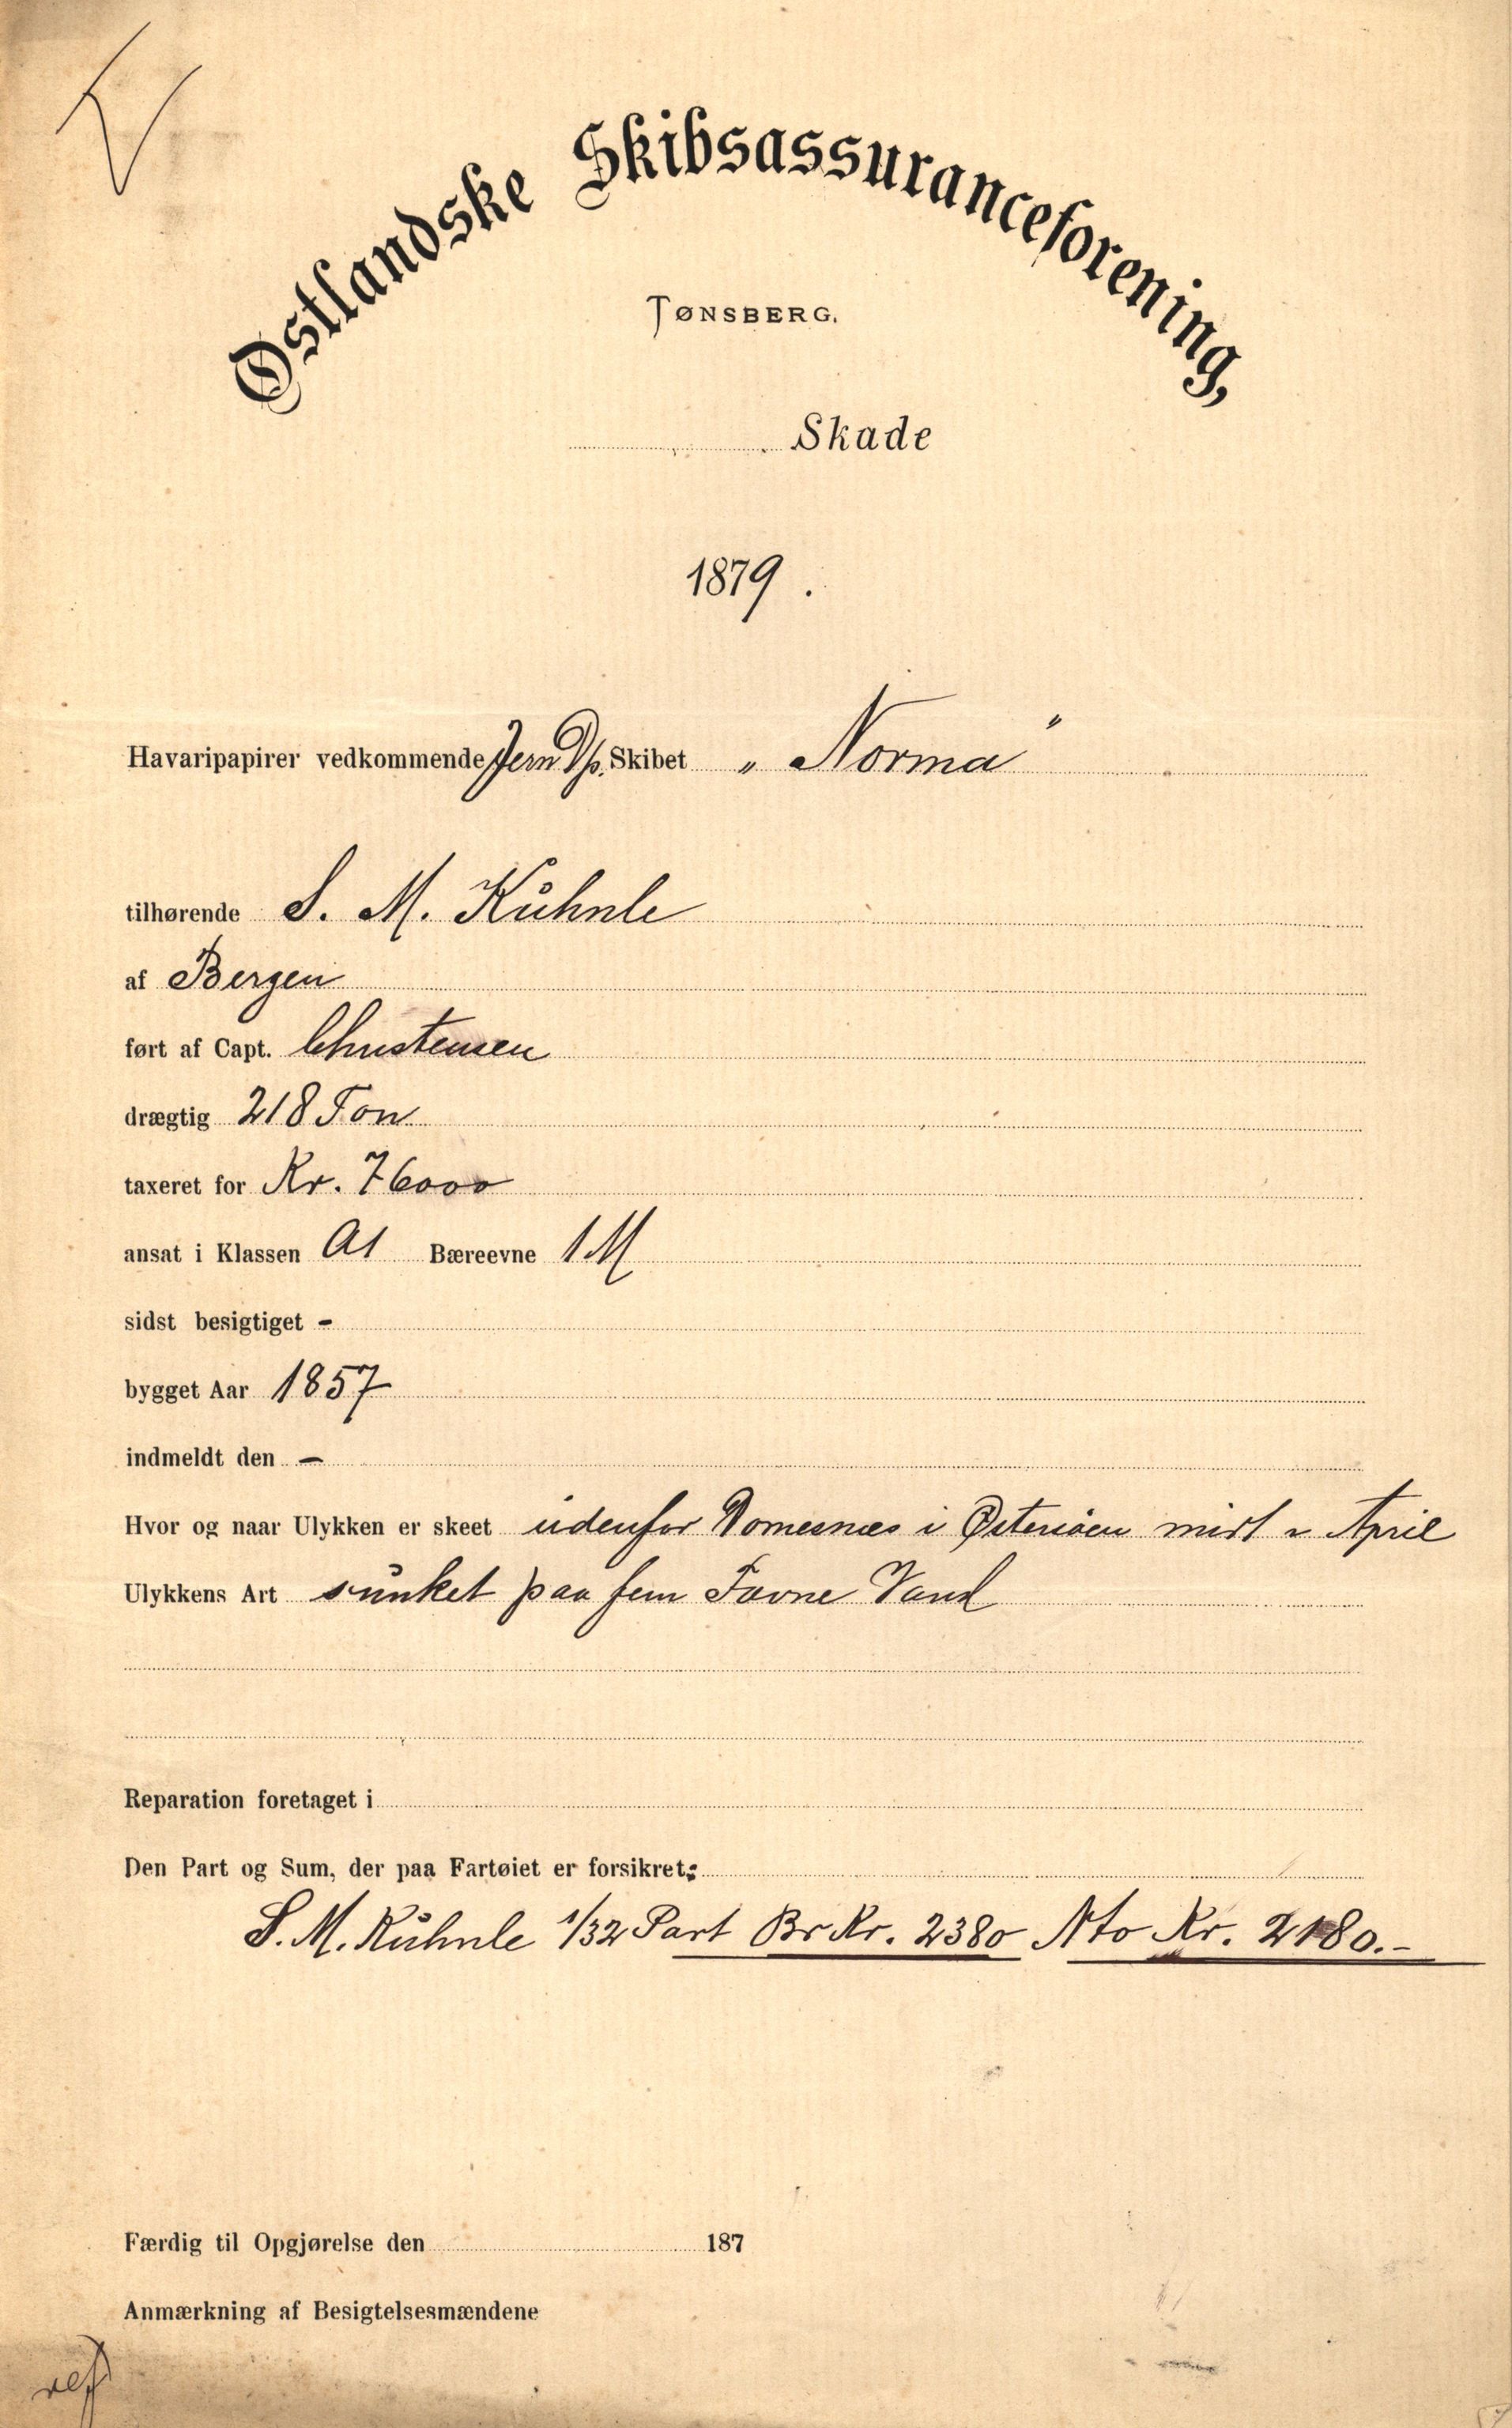 Østlandske Skibsassuranceforening,
TØNSBERG.
Skade
1879.
Havaripapirer vedkommende Jern Dp. Skibet „Norma"
tilhørende S. M. Kühnle
af Bergen
ført af Capt. Christensen
drægtig 218 Ton
taxeret for Kr. 76000
ansat i Klassen A1 Bæreevne 1M
sidst besigtiget -
bygget Aar 1857
indmeldt den -
Hvor og naar Ulykken er skeet udenfor Domesnæs i Østersöen midt i April
Ulykkens Art sunket paa fem Favne Vand
Reparation foretaget i
Den Part og Sum, der paa Fartøiet er forsikret:
S. M. Kühnle 1/32 Part Br Kr. 2380 Nto Kr. 2180.-
Færdig til Opgjørelse den 187
Anmærkning af Besigtelsesmændene